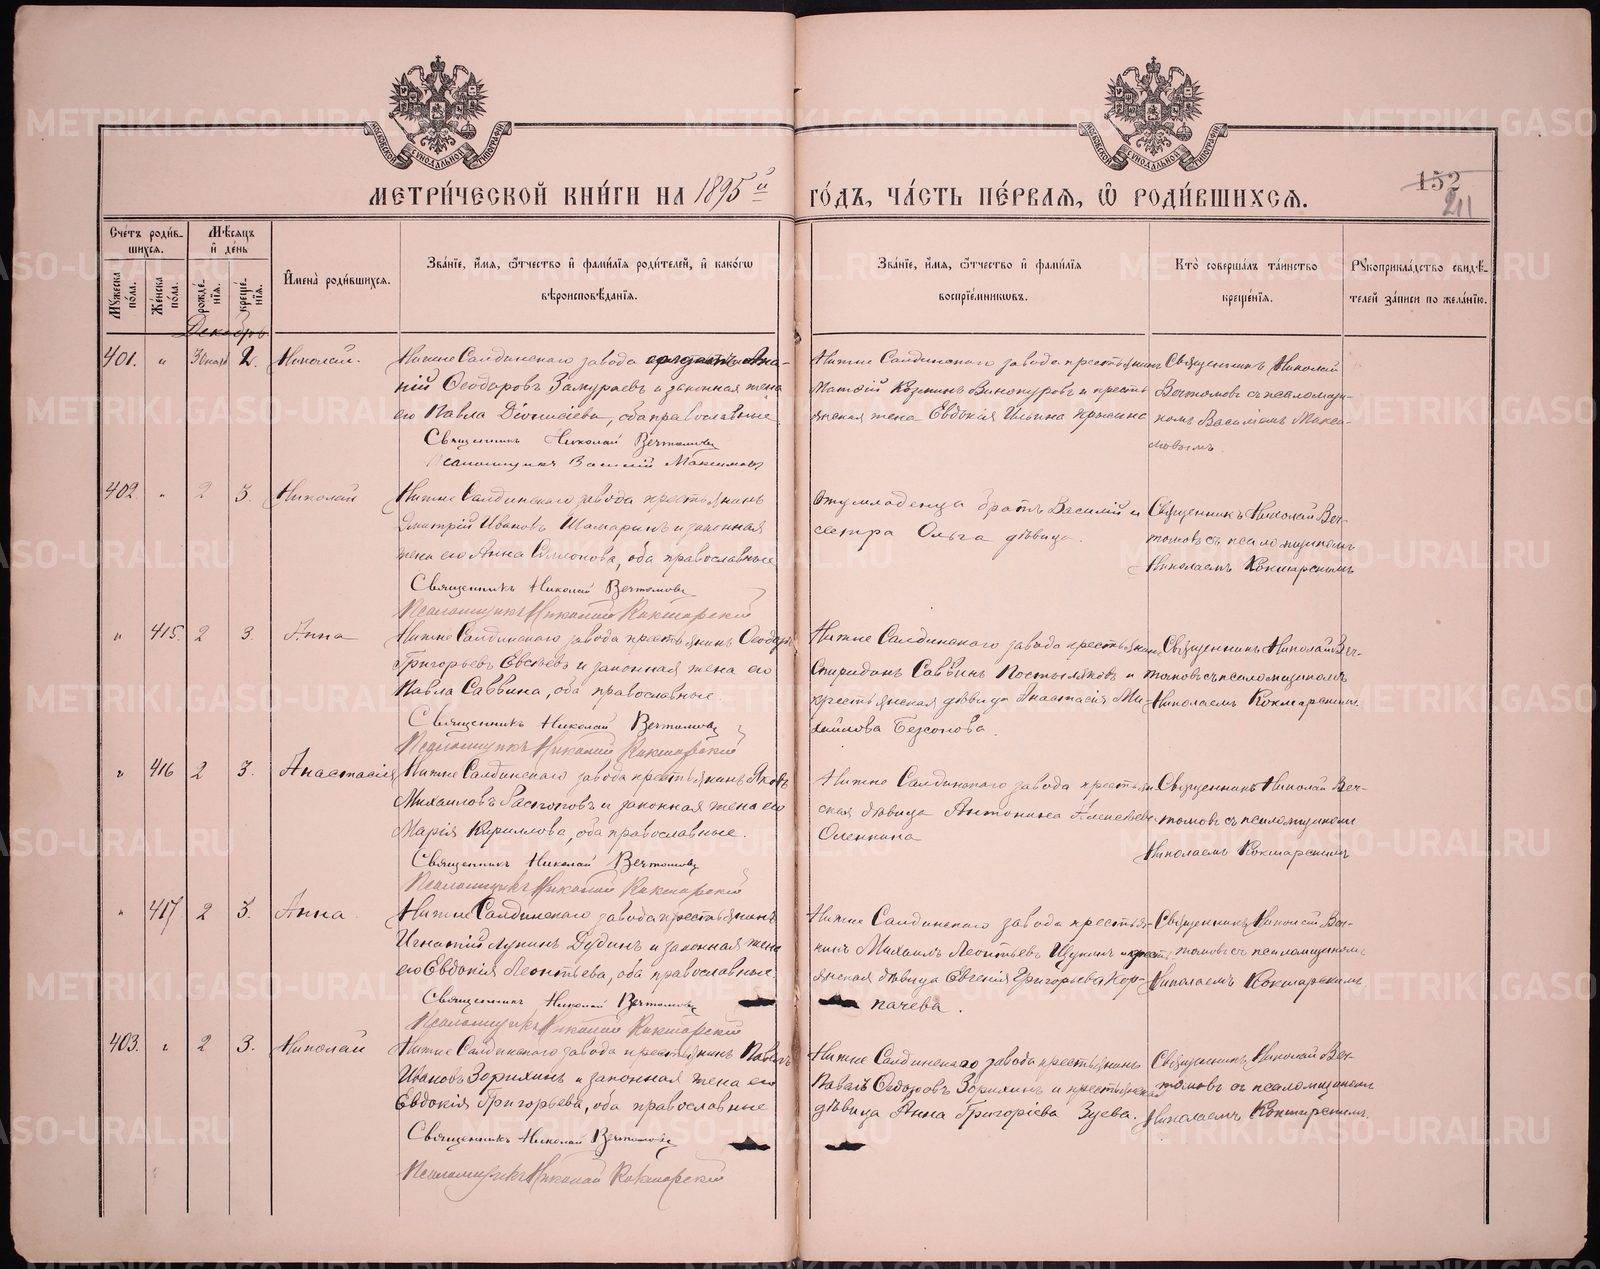 МОСКОВСКОЙ СУНОДАЛЬНОЙ ТИПОГРАФІИ
МОСКОВСКОЙ СУНОДАЛЬНОЙ ТИПОГРАФІИ
МЕТРИ́ЧЕСКОЙ КНИ́ГИ НА 1895й ГО́ДЪ, ЧА́СТЬ ПЕ́РВАѦ, Ѡ҆ РОДИ́ВШИХСѦ.
152
211
Сче́тъ роди́вшихсѧ.
Мꙋ́жеска по́ла.
Же́нска по́ла.
Мѣ́сѧцъ и҆ де́нь
рожде́нїѧ.
креще́нїѧ.
И҆мена̀ роди́вшихсѧ.
Зва́нїе, и҆́мѧ, ѻ҆́тчество и҆ фами́лїѧ роди́телей, и҆ како́гѡ
вѣроисповѣ́данїѧ.
Зва́нїе, и҆́мѧ, ѻ҆́тчество и҆ фами́лїѧ
воспрїе́мникѡвъ.
Кто̀ соверша́лъ та́инство
креще́нїѧ.
Рꙋкоприкла́дство свидѣ́-
телей за́писи по жела́нїю.
Декабрь
401. " 30 2. Николай.
Нижне Салдинскаго завода Ана-
ній Ѳеодоровъ Замураевъ и законная жена
его Павла Діонисіева, оба православные
Священникъ Николай Вечтомовъ
Псаломщикъ Василій Максимовъ
Нижне Салдинскаго завода крестьянинъ
Матѳій Козминъ Винокуровъ и кресть
янская жена Евдокія Ильина
Священникъ Николай
Вечтомовъ съ псаломщи-
комъ Василіемъ Макси-
мовымъ.
402. " 2 3. Николай
Нижне Салдинскаго завода крестьянинъ
Дмитрій Ивановъ Шамаринъ и законная
жена его Анна Симеонова, оба православные
Священникъ Николай Вечтомовъ
Псаломщикъ Николай Кокшарскій
Отъ младенца братъ Василій и
сестра Ольга дѣвица.
Священникъ Николай Веч-
томовъ съ псаломщикомъ
Николаемъ Кокшарскимъ
" 415. 2 3. Анна
Нижне Салдинскаго завода крестьянинъ Ѳеодоръ
Григорьевъ Евсѣевъ и законная жена его
Павла Саввина, оба православные
Священникъ Николай Вечтомовъ
Псаломщикъ Николай Кокшарскій
Нижне Салдинскаго завода крестьянинъ
Спиридонъ Саввинъ Постыляковъ и
крестьянская дѣвица Анастасія Ми-
хайлова Безсонова.
Священникъ Николай Веч-
томовъ съ псаломщикомъ
Николаемъ Кокшарскимъ.
" 416 2 3. Анастасія
Нижне Салдинскаго завода крестьянинъ Яковъ
Михаиловъ Распоповъ и законная жена его
Марія Кириллова, оба православные.
Священникъ Николай Вечтомовъ
Псаломщикъ Николай Кокшарскій
Нижне Салдинскаго завода крестьян-
ская дѣвица Антонина Алексѣева
Оленкина
Священникъ Николай Веч-
томовъ съ псаломщикомъ
Николаемъ Кокшарскимъ
" 417 2 3. Анна.
Нижне Салдинскаго завода крестьянинъ
Игнатій Лукинъ Дудинъ и законная жена
его Евдокія Леонтьева, оба православные.
Священникъ Николай Вечтомовъ
Псаломщикъ Николай Кокшарскій
Нижне Салдинскаго завода крестья-
нинъ Михаилъ Леонтьевъ Щукинъ и крест
янская дѣвица Евгенія Григорьева Кор-
пачева.
Священникъ Николай Веч-
томовъ съ псаломщикомъ
Николаемъ Кокшарскимъ
403. " 2 3. Николай
Нижне Салдинскаго завода крестьянинъ Павелъ
Ивановъ Зорихинъ и законная жена его
Евдокія Григорьева, оба православные
Священникъ Николай Вечтомовъ
Псаломщикъ Николай Кокшарскій
Нижне Салдинскаго завода крестьянинъ
Павелъ Ѳеодоровъ Зорихинъ и крестьянская
дѣвица Анна Григоріева Зуева.
Священникъ Николай Веч-
томовъ съ псаломщикомъ
Николаемъ Кокшарскимъ.
METRIKI.GASO-URAL.RU